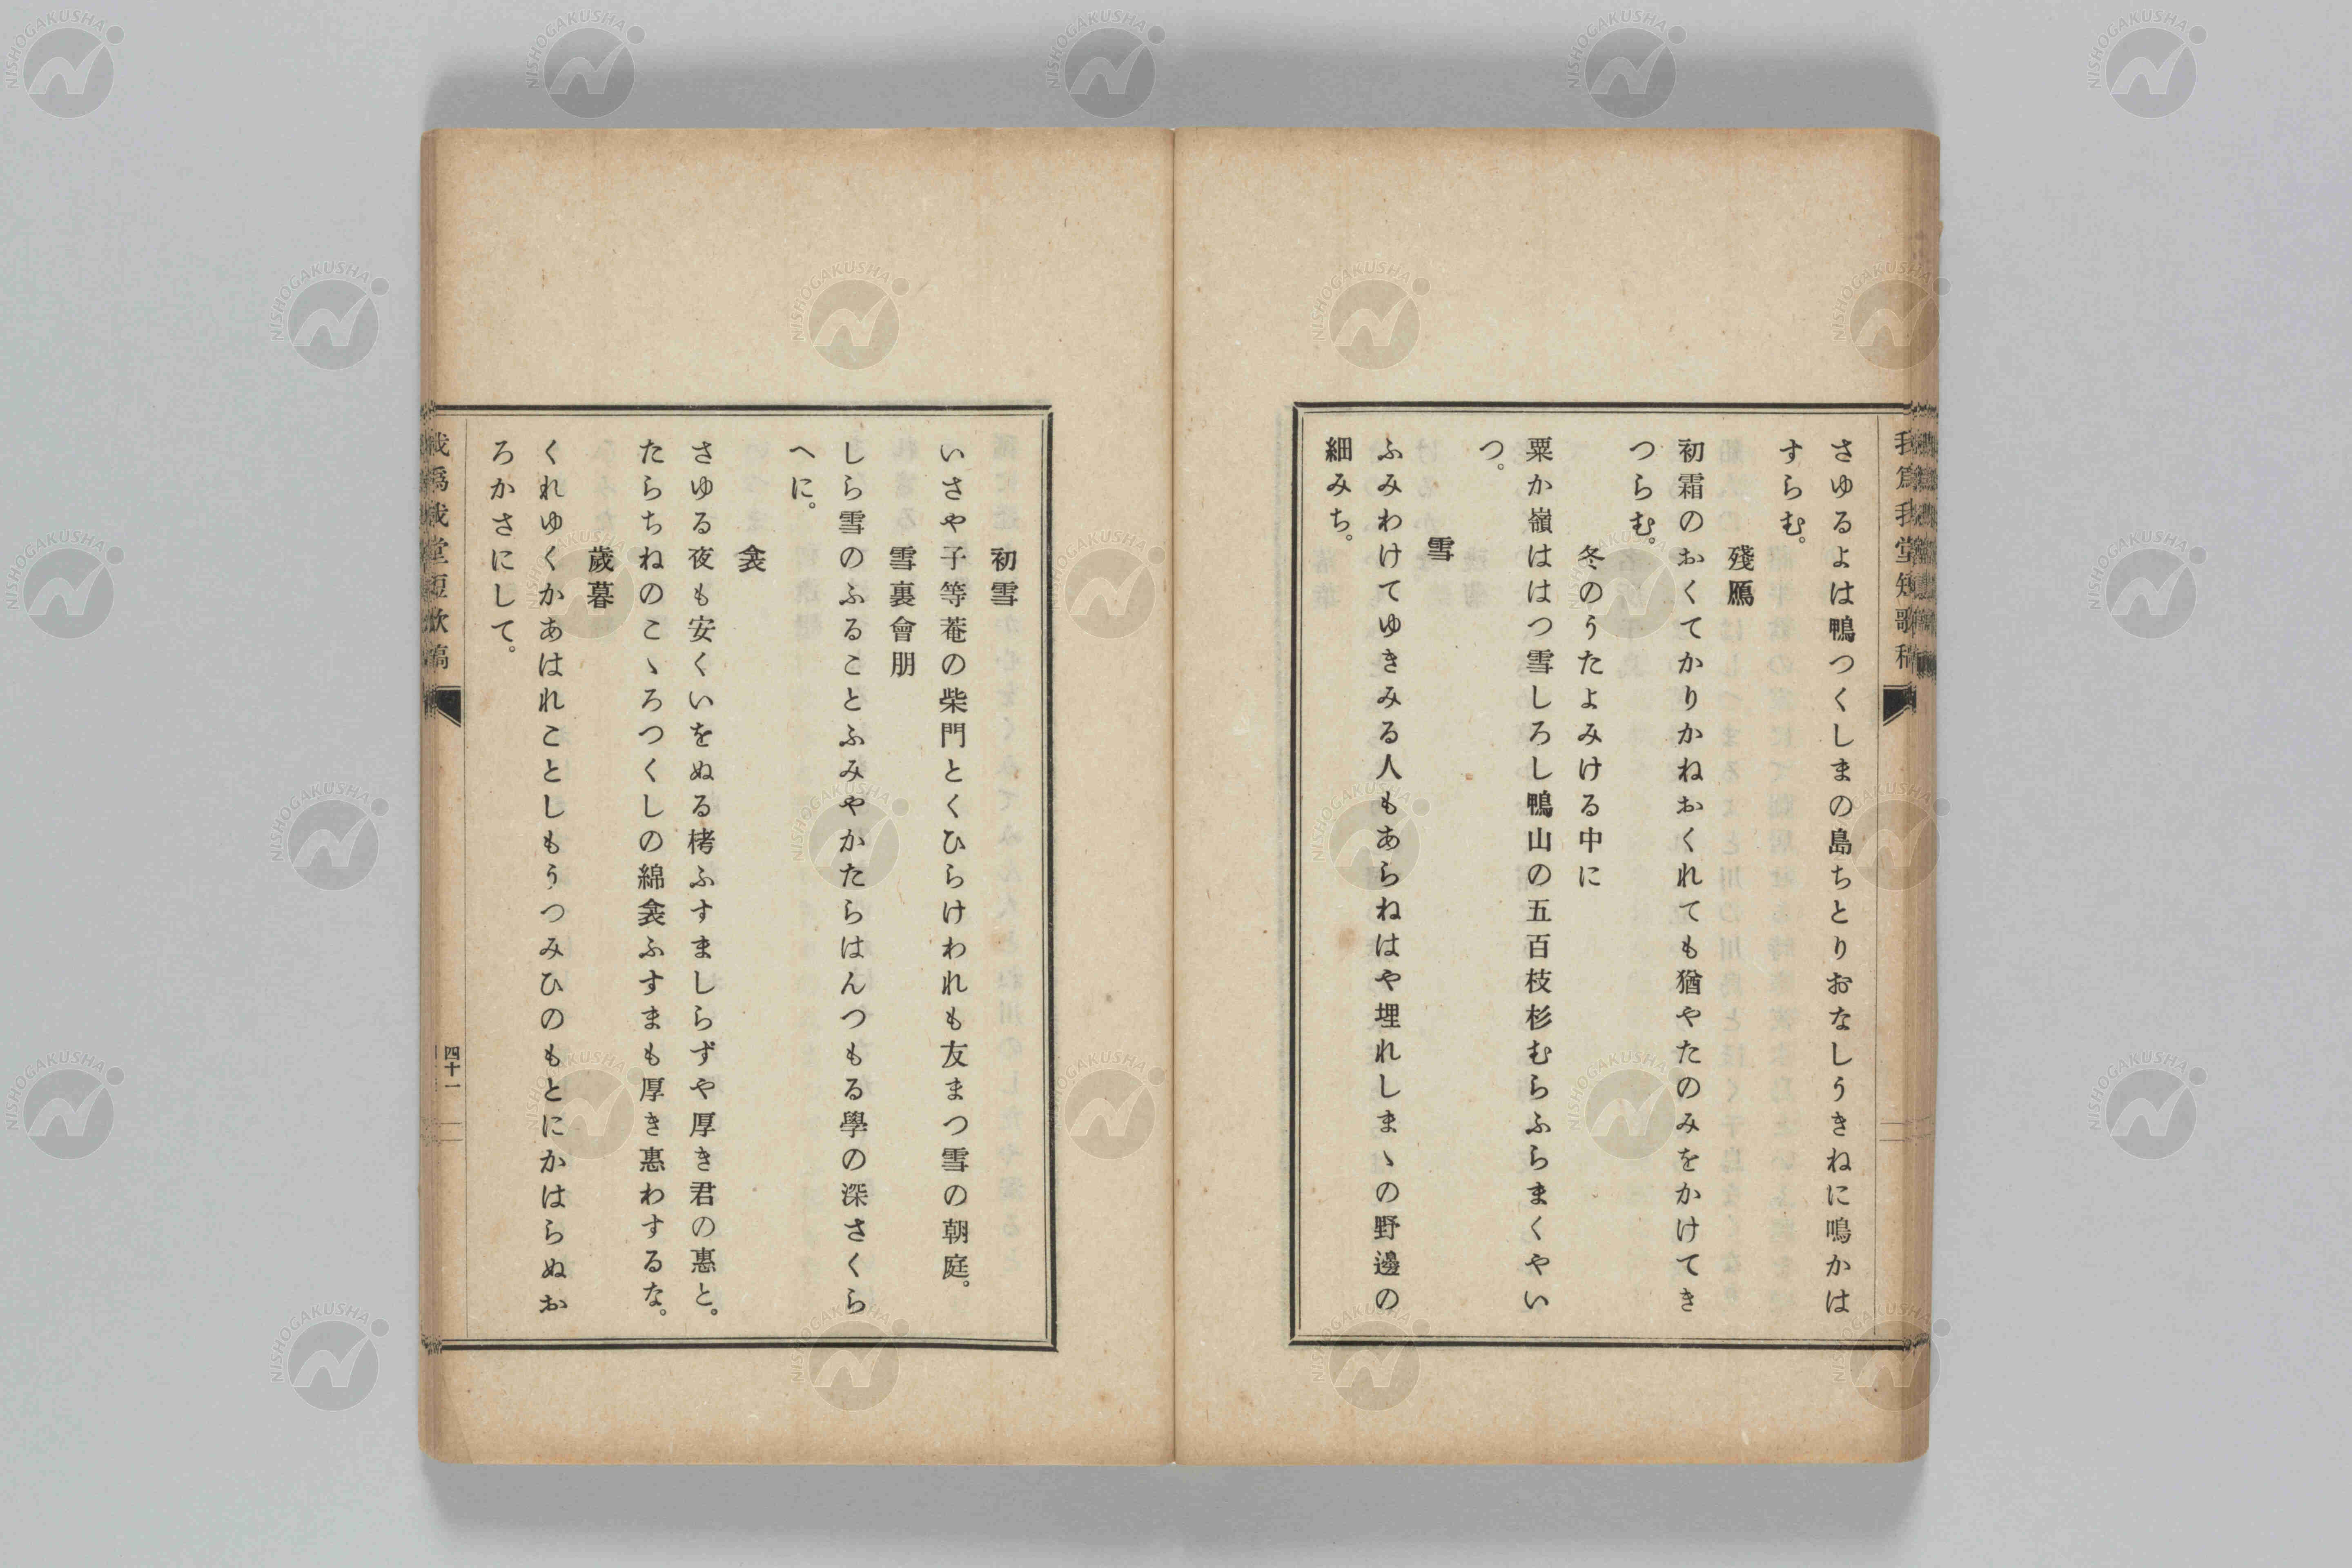 我爲我堂短歌稿
さゆるよは鴨つくしまの島ちとりおなしうきねに鳴かは
すらむ。
殘鴈
初霜のおくてかりかねおくれても猶やたのみをかけてき
つらむ。
冬のうたよみける中に
粟か嶺ははつ雪しろし鴨山の五百枝杉むらふらまくやい
つ。
雪
ふみわけてゆきみる人もあらねはや埋れしまゝの野邊の
細みち。
初雪
いさや子等菴の柴門とくひらけわれも友まつ雪の朝庭。
雪裏會朋
しら雪のふることとふみやかたらはんつもる學の深さくら
へに。
衾
さゆる夜も安くいをぬる栲ふすましらずや厚き君の惠と。
たらちねのこゝろつくしの綿衾ふすまも厚き惠わするな。
歲暮
くれゆくかあはれことしもうつみひのもとにかはらぬお
ろかさにして。
我爲我堂短歌稿
四十一
NISHOGAKUSHA